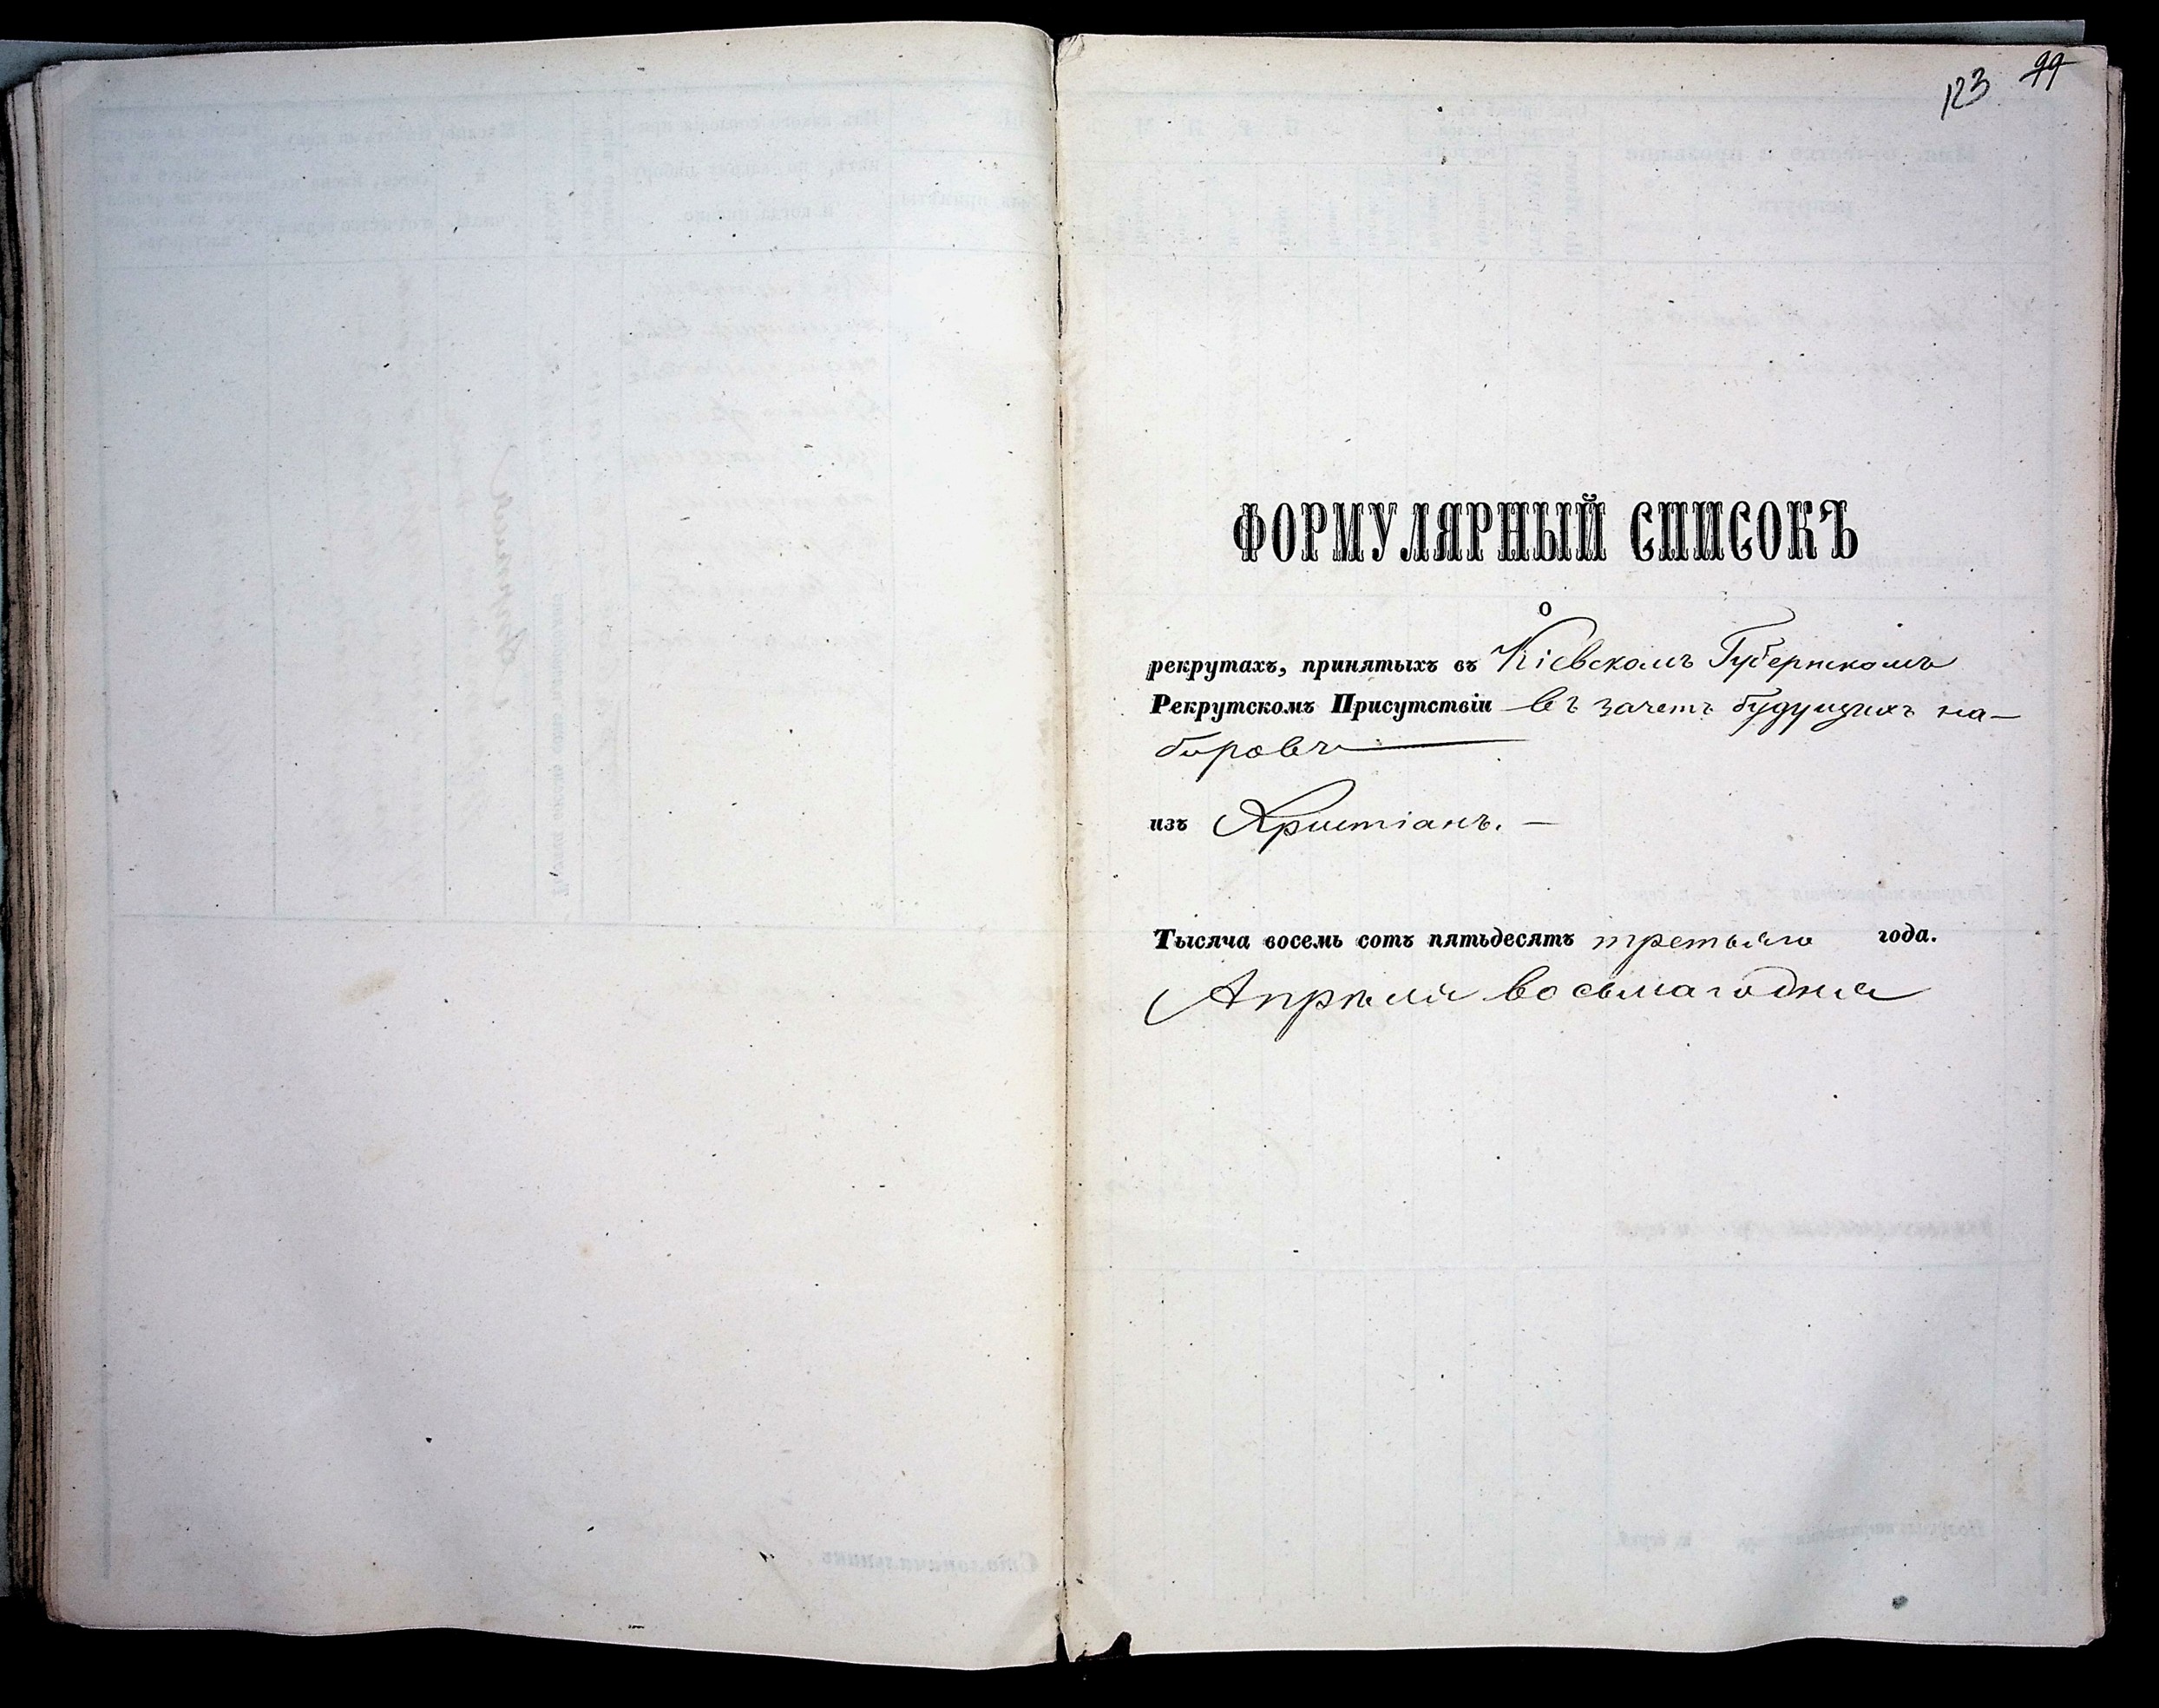 123 99
ФОРМУЛЯРНЫЙ СПИСОКЪ
о
рекрутахъ, принятыхъ въ Кіевскомъ Губернскомъ
Рекрутскомъ Присутствіи въ зачетъ будущихъ на-
боровъ
изъ Христіанъ. —
Тысяча восемь сотъ пятьдесятъ третьяго года.
Апрѣля восьмаго дня